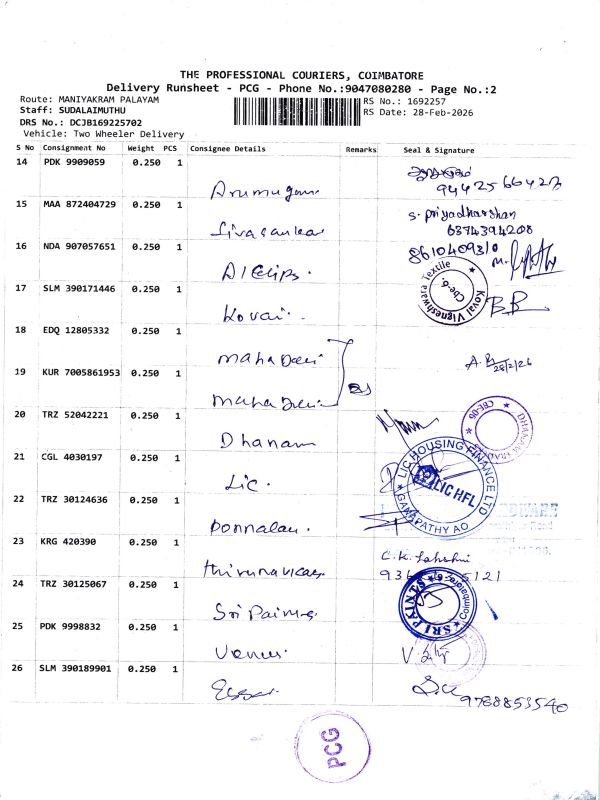 THE PROFESSIONAL COURIERS, COIMBATORE
Delivery Runsheet - PCG - Phone No.:9047080280 - Page No.:2
Route: MANIYAKRAM PALAYAM
Staff: SUDALAIMUTHU
DRS No.: DCJB169225702
Vehicle: Two Wheeler Delivery
RS No.: 1692257
RS Date: 28-Feb-2026
S No Consignment No Weight PCS Consignee Details Remarks Seal & Signature
14 PDK 9909059 0.250 1 Arumugam
15 MAA 872404729 0.250 1 Sivasankar S. Priyadharshan
6374394208
16 NDA 907057651 0.250 1
17 SLM 390171446 0.250 1 Kovai Kovai Vigneshwara Textile Cbe-6
18 EDQ 12805332 0.250 1 Maha Devi
28/2/26
19 KUR 7005861953 0.250 1 Maha Devi
20 TRZ 52042221 0.250 1 Dhanam DHANAM CBE-06
21 CGL 4030197 0.250 1 Lic. LIC HOUSING FINANCE LTD LIC HFL GANAPATHY AO
22 TRZ 30124636 0.250 1 Ponnalau.
23 KRG 420390 0.250 1 C.K. Lakshmi
24 TRZ 30125067 0.250 1 Sri Paints SRI PAINTS Coimbatore-6
25 PDK 9998832 0.250 1 Venus.
26 SLM 390189901 0.250 1
9788853540
PCG